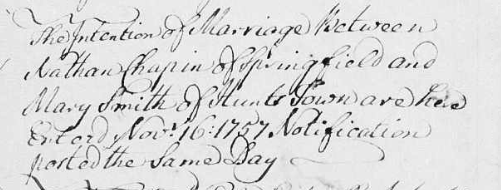 The Intention of Marriage Between
Nathan Chapin of Springfield and
Mary Smith of Hunts Town are here
Enterd Novr. 16: 1757 Notification
posted the Same Day